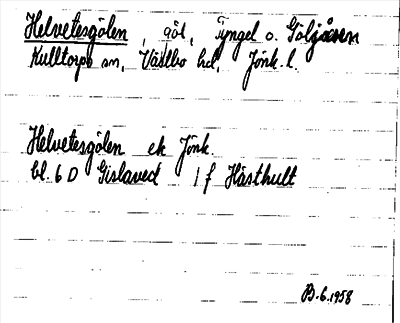 Helvetesgölen, göl, Tyngel o. Göljåsen
Kulltorps sn, Västbo hd, Jönk. l.
Helvetesgölen ek Jönk.
bl. 6 D Gislaved 1 f Hästhult
B. 6. 1958